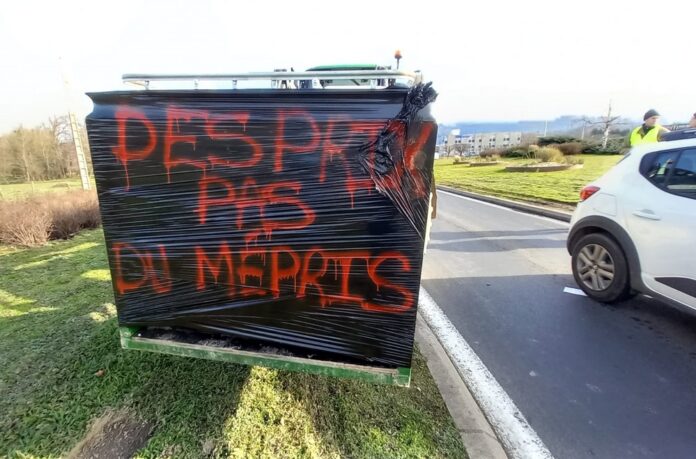 DES PRIX
PAS
DU MÉPRIS